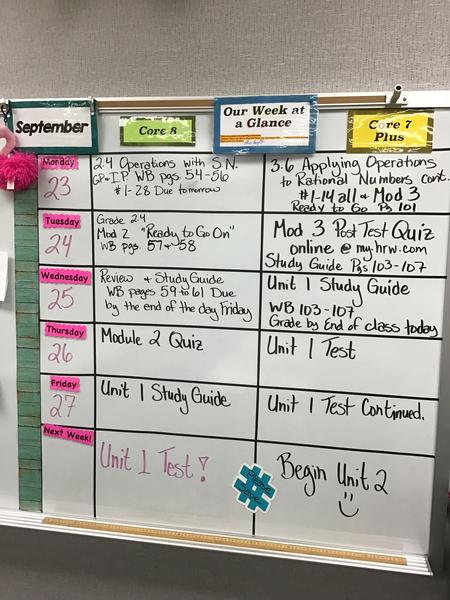 September
Core 8
Our Week at
a Glance
Core 7
Plus
Monday
23
2.4 Operations with S.N.
GP + I.P. WB pgs 54-56
#1-28 Due tomorrow
3.6 Applying Operations
to Rational Numbers cont.
#1-14 all & Mod 3
Ready to Go Pg 101
Tuesday
24
Grade 2.4
Mod 2 "Ready to Go On"
WB pgs. 57 + 58
Mod 3 Post Test Quiz
online @ my.hrw.com
Study Guide Pgs 103-107
Wednesday
25
Review + Study Guide
WB pages 59 to 61 Due
by the end of the day Friday
Unit 1 Study Guide
WB 103-107
Grade by End of class today
Thursday
26
Module 2 Quiz
Unit 1 Test
Friday
27
Unit 1 Study Guide
Unit 1 Test Continued.
Next Week!
Unit 1 Test!
Please
Save
Begin Unit 2